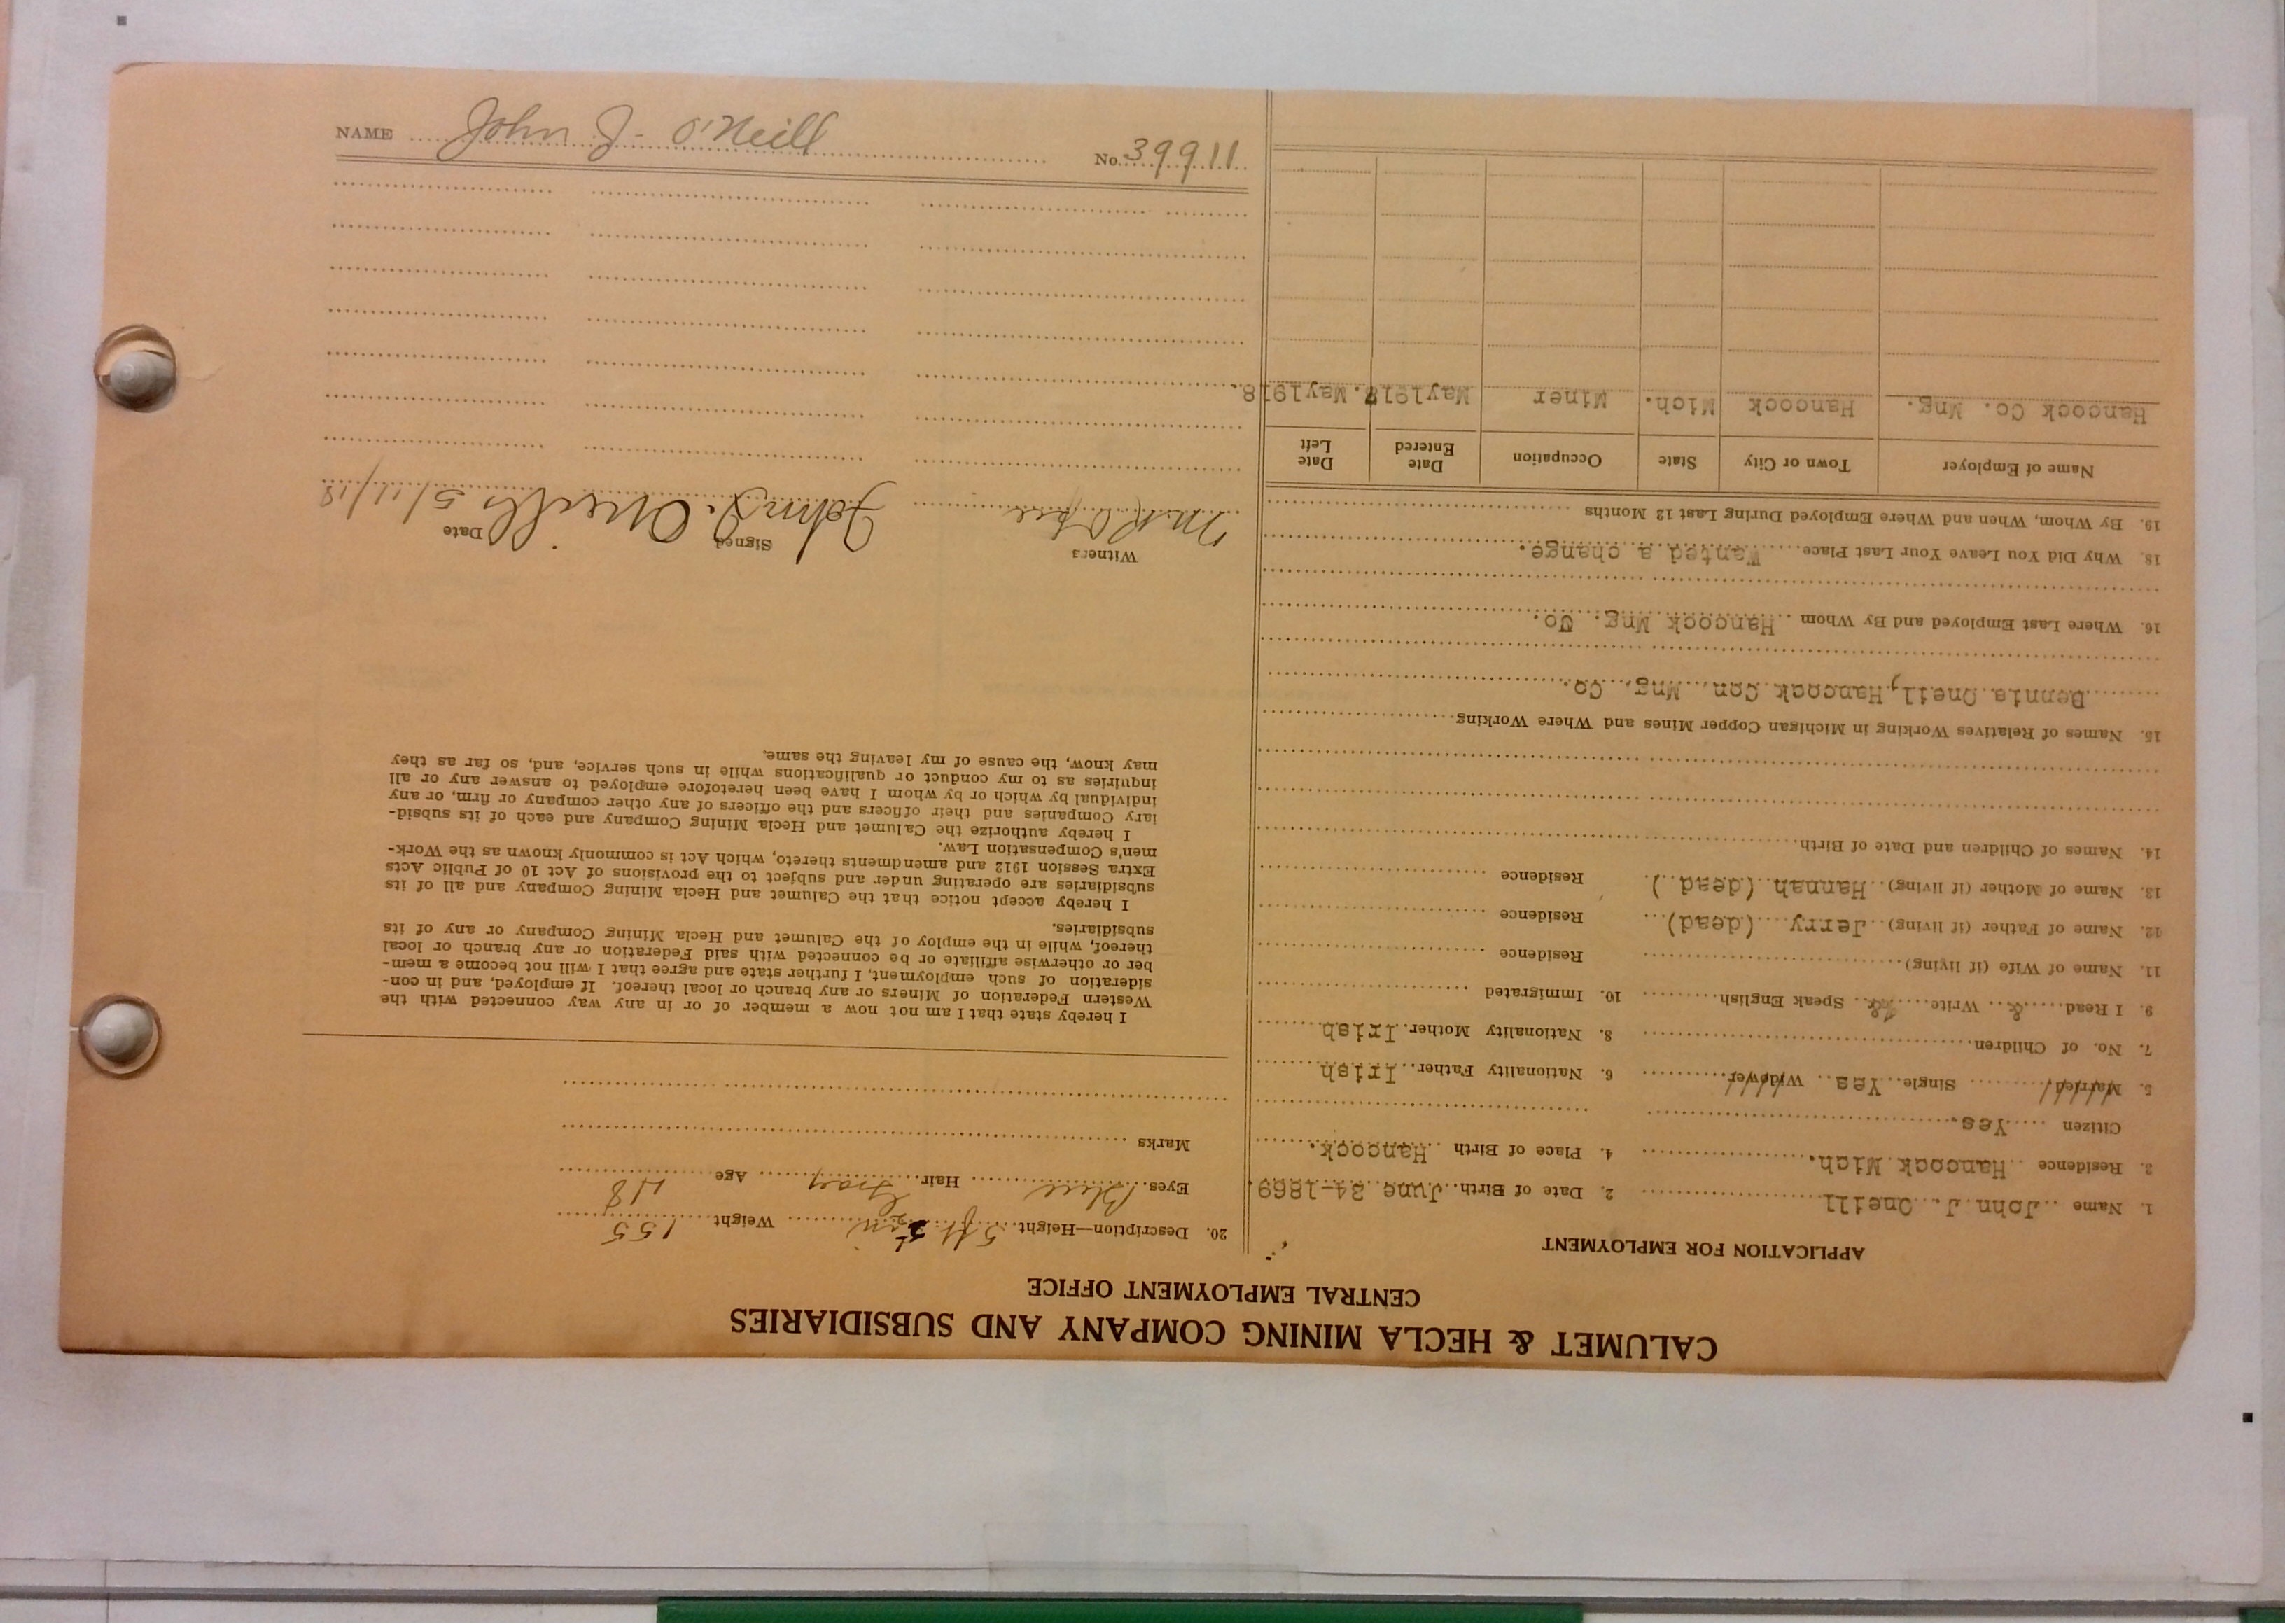 NAME John J. O'Neill No. 39911
CALUMET & HECLA MINING COMPANY AND SUBSIDIARIES
CENTRAL EMPLOYMENT OFFICE
APPLICATION FOR EMPLOYMENT
1. Name John J. Oneill 2. Date of Birth June 24-1869.
3. Residence Hancock Mich. 4. Place of Birth Hancock.
Citizen Yes.
5. Married Single Yes Widower 6. Nationality Father Irish
7. No. of Children 8. Nationality Mother Irish
9. I Read Write Speak English 10. Immigrated
11. Name of Wife (if living) Residence
12. Name of Father (if living) Jerry (dead) Residence
13. Name of Mother (if living) Hannah (dead ) Residence
14. Names of Children and Date of Birth
15. Names of Relatives Working in Michigan Copper Mines and Where Working
Dennis Oneil, Hancock Con. Mng, Co.
16. Where Last Employed and By Whom Hancock Mng. Co.
18. Why Did You Leave Your Last Place Wanted a change.
19. By Whom, When and Where Employed During Last 12 Months
Name of Employer Town or City State Occupation Date Entered Date Left
Hancock Co. Mng. Hancock Mich. Miner May1917. May1918.
20. Description—Height 5 ft 5½ in Weight 155
Eyes Blue Hair Gray Age 48
Marks
I hereby state that I am not now a member of or in any way connected with the
Western Federation of Miners or any branch or local thereof. If employed, and in con-
sideration of such employment, I further state and agree that I will not become a mem-
ber or otherwise affiliate or be connected with said Federation or any branch or local
thereof, while in the employ of the Calumet and Hecla Mining Company or any of its
subsidiaries.
I hereby accept notice that the Calumet and Hecla Mining Company and all of its
subsidiaries are operating under and subject to the provisions of Act 10 of Public Acts
Extra Session 1912 and amendments thereto, which Act is commonly known as the Work-
men's Compensation Law.
I hereby authorize the Calumet and Hecla Mining Company and each of its subsid-
iary Companies and their officers and the officers of any other company or firm, or any
individual by which or by whom I have been heretofore employed to answer any or all
inquiries as to my conduct or qualifications while in such service, and, so far as they
may know, the cause of my leaving the same.
Witness Signed Date
John J. Oneill 5/11/18